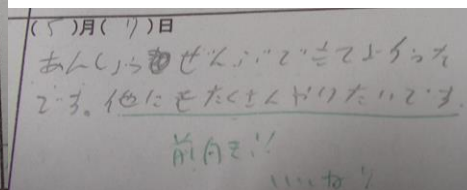 (5)月(17)日
あんしょうぜんぶできてよかった
です。他にもたくさんやりたいです。
前向き!!
いいね!